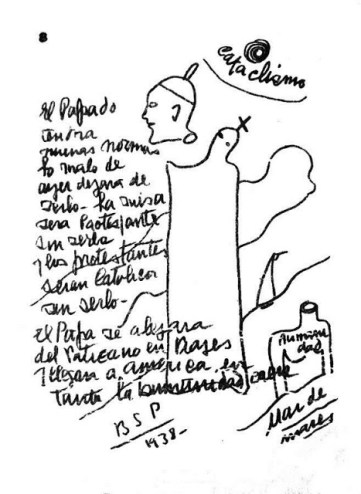 8
Cataclismo
El Papado
tendra
nuevas normas
Lo malo de
ayer dejara de
serlo - La misa
sera Protestante
sin serlo
y los protestantes
seran Catolicos
sin serlo -
El Papa se alejara
del Vaticano en Viajes
y llegara a America, en
tanto la humanidad caera
Humani
dad
Mar de
mares
BSP
1938-